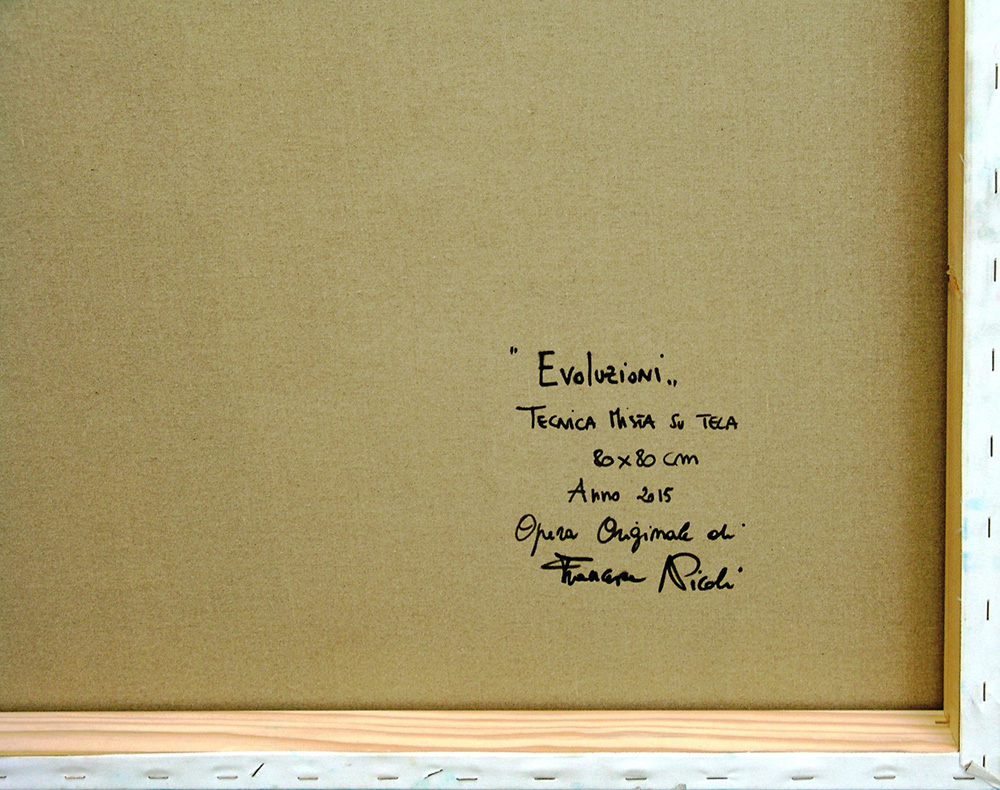 " Evoluzioni „
TECNICA MISTA SU TELA
80x80 cm
Anno 2015
Opera Originale di
Nicoli